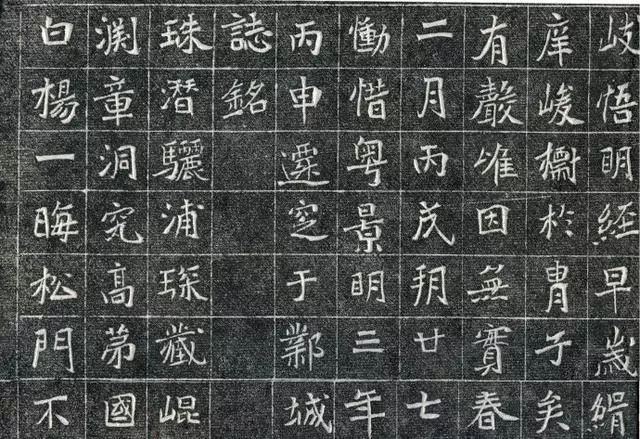 岐悟明経早歲緝
庠峻於胄子矣
有聲唯因無實春
二月丙戌朔廿七
慟惜粵景明三年
丙申遷窆于鄴城
誌銘
珠潛驪浦琛藏崐
渊章洞究高苐國
白楊一晦松門不